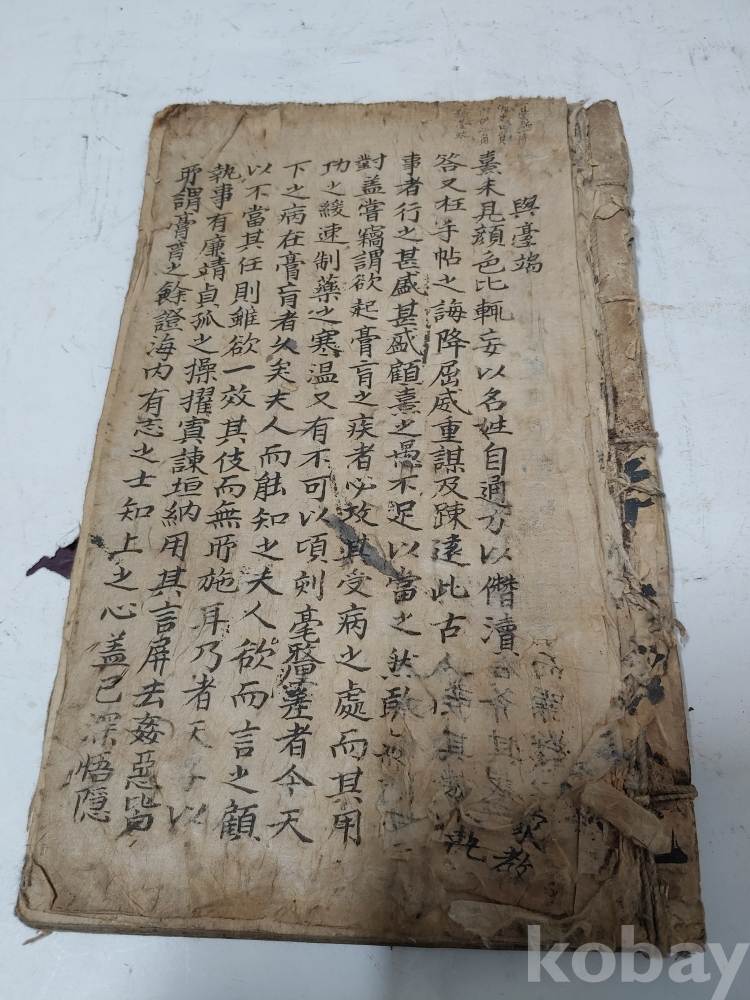 與臺端
熹未見顔色比輒妄以名姓自通方以僭瀆
答又枉手帖之誨降屈威重謀及踈遠此古
事者行之甚盛甚盛顧熹之愚不足以當之然敢無
對盖嘗竊謂欲起膏肓之疾者必攻其受病之處而其用
功之緩速制藥之寒温又有不可以頃刻毫釐差者今天
下之病在膏肓者久矣夫人而能知之夫人欲而言之顧
以不當其任則雖欲一效其伎而無所施耳乃者天子以
執事有廉靖貞孤之操擢寘諫垣納用其言屏去姦惡皆
所謂膏肓之餘證海内有志之士知上之心盖已深悟隱
kobay